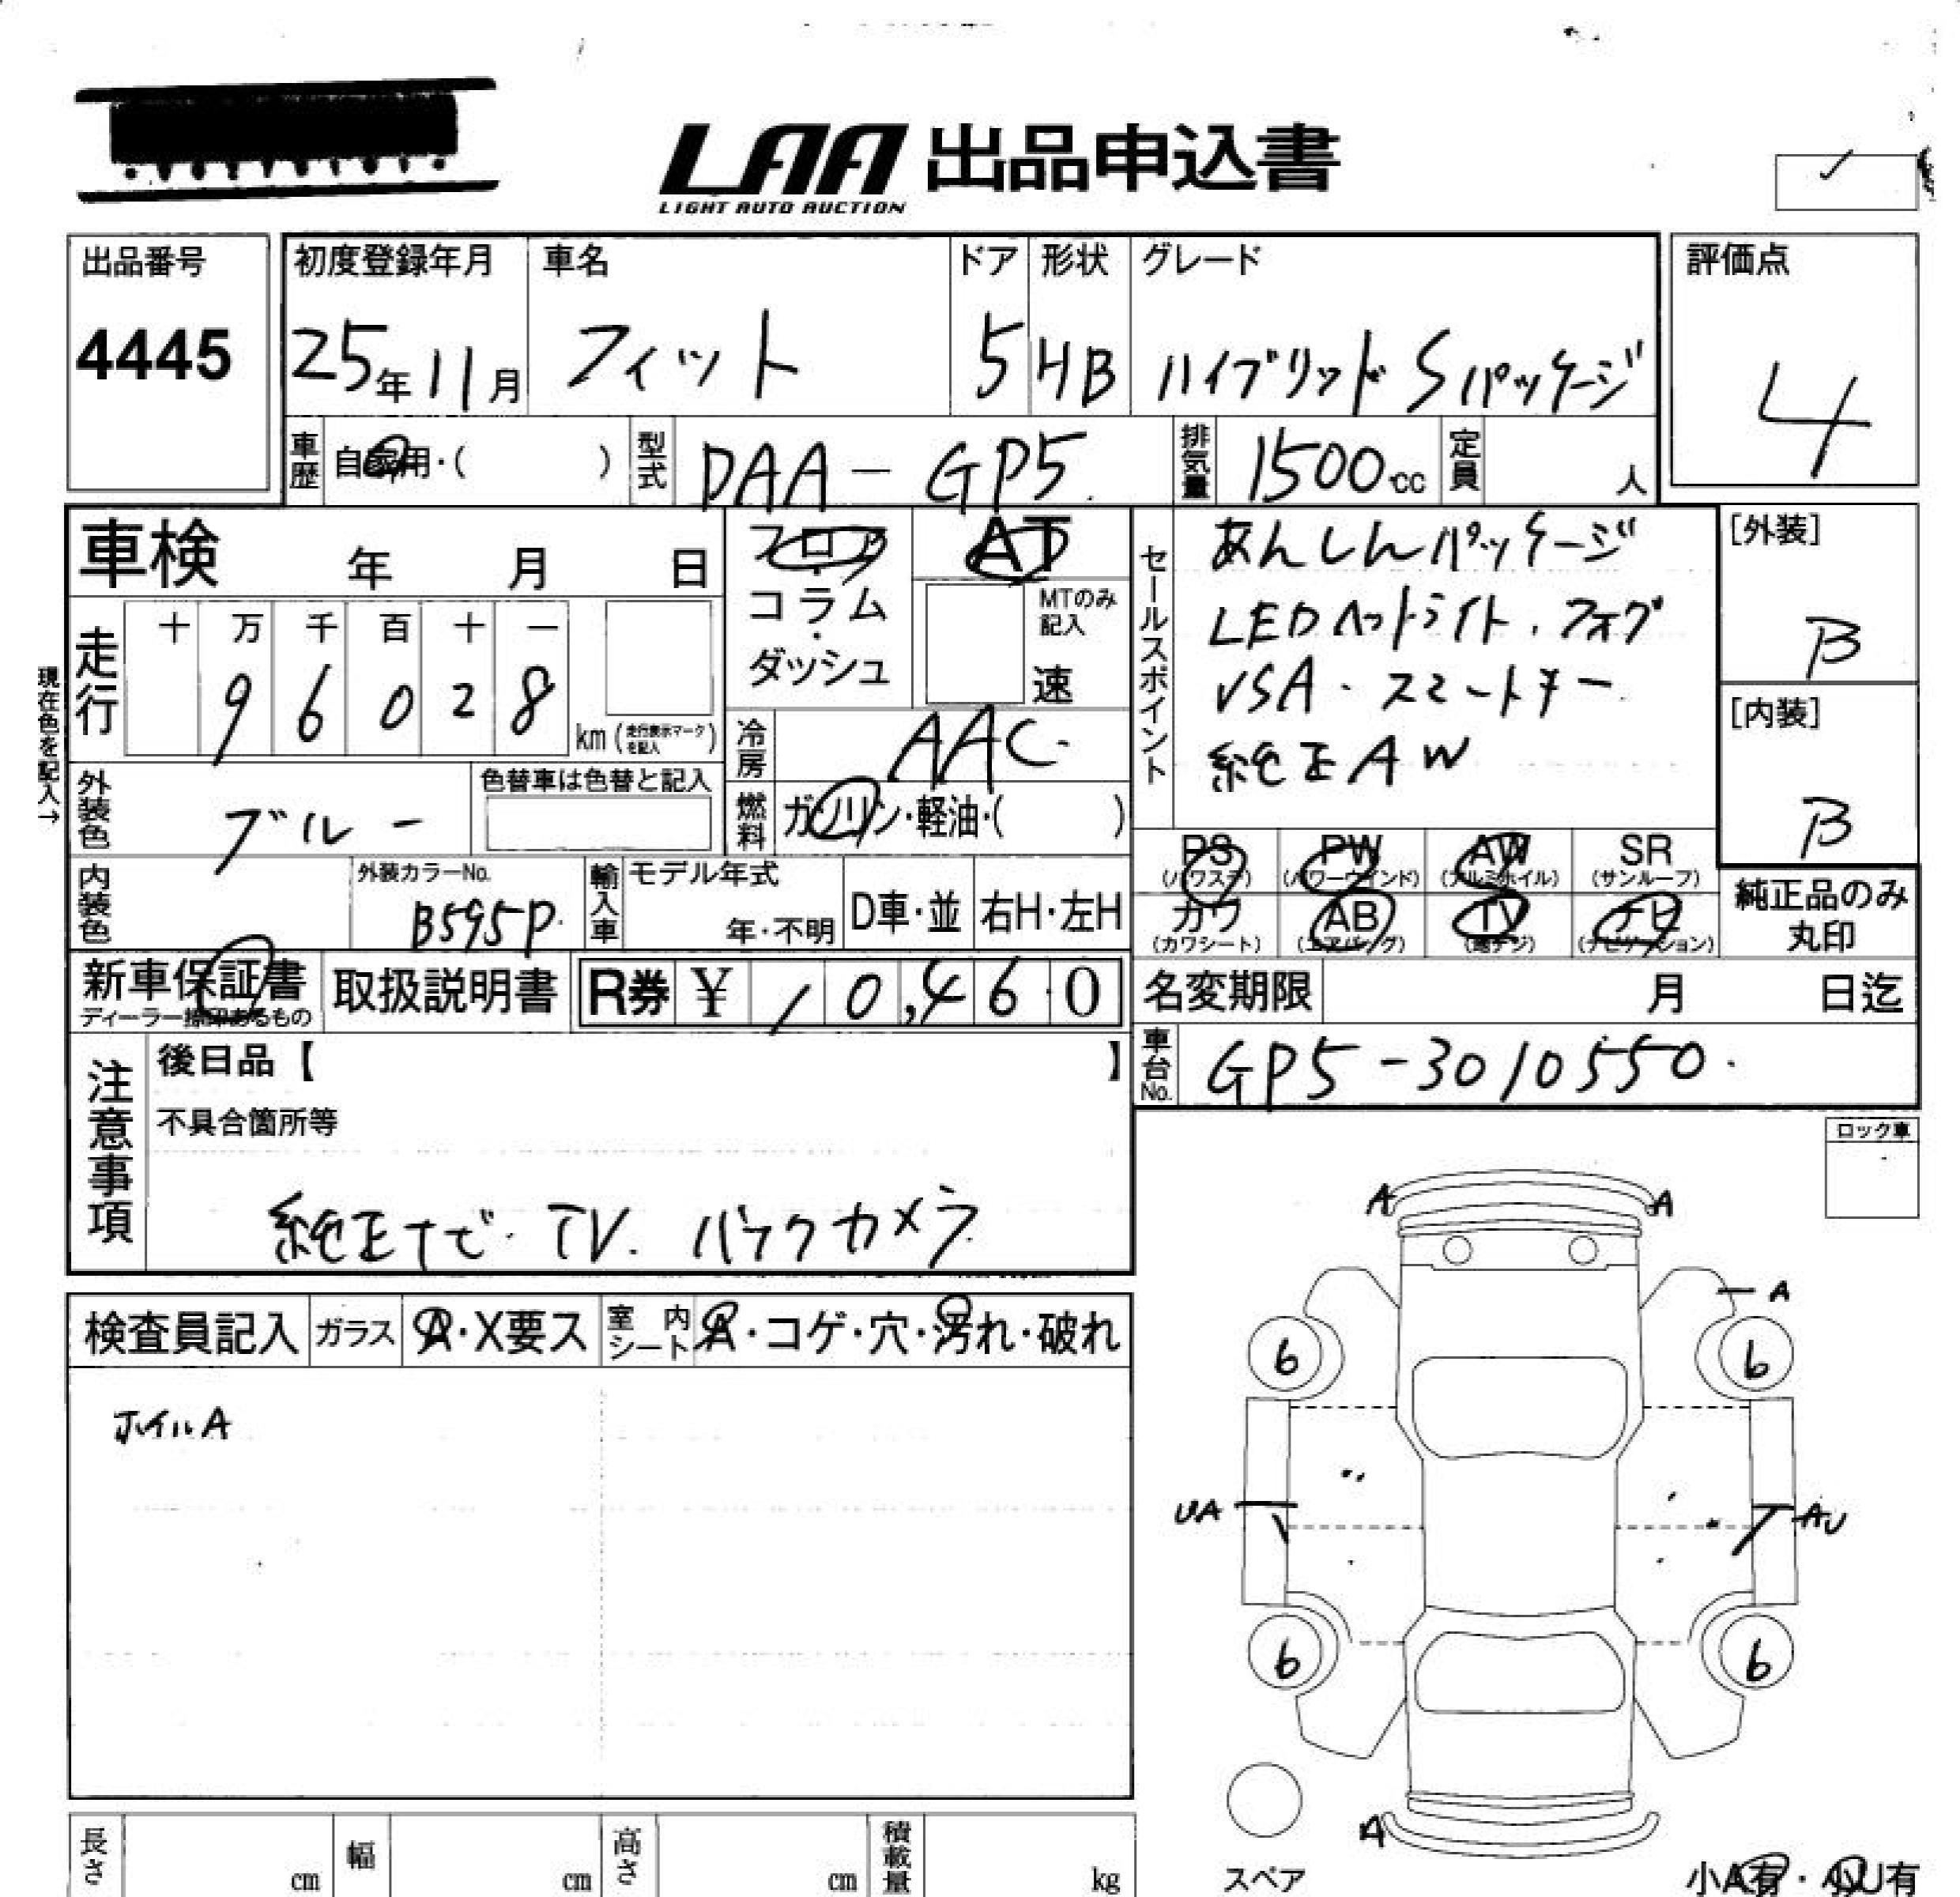 LAA 出品申込書
LIGHT AUTO AUCTION
出品番号
4445
初度登録年月
25年11月
車名
フィット
ドア
5
形状
HB
グレード
ハイブリッド Sパッケージ
評価点
4
車歴
自家用・( )
型式
DAA-GP5
排気量
1500cc
定員
人
車検 年 月 日
フロア
・
コラム
・
ダッシュ
AT
MTのみ
記入
速
セールスポイント
あんしんパッケージ
LEDヘットライト.フォグ
VSA.スマートキー
純正AW
[外装]
B
[内装]
B
現在色を記入→
走行
十 万 千 百 十 一
9 6 0 2 8
km(走行表示マークを記入)
冷房
AAC
燃料
ガソリン・軽油・( )
外装色
ブルー
色替車は色替と記入
内装色
外装カラーNo.
B595P
輸入車
モデル年式
年・不明
D車・並
右H・左H
PS
(パワステ)
PW
(パワーウインド)
AW
(アルミホイル)
SR
(サンルーフ)
カワ
(カワシート)
AB
(エアバッグ)
TV
(地デジ)
ナビ
(ナビゲーション)
純正品のみ
丸印
新車保証書
ディーラー捺印あるもの
取扱説明書
R券 ¥ 10,460
名変期限 月 日迄
車台No.
GP5-3010550.
注意事項
後日品【 】
不具合箇所等
純正ナビ.TV.バックカメラ
ロック車
検査員記入
ガラス
A・X要ス
室内シート
A・コゲ・穴・汚れ・破れ
ホイルA
A A
A
6 6
UA AU
6 6
A
スペア
小A有・小U有
長さ cm
幅 cm
高さ cm
積載量 kg